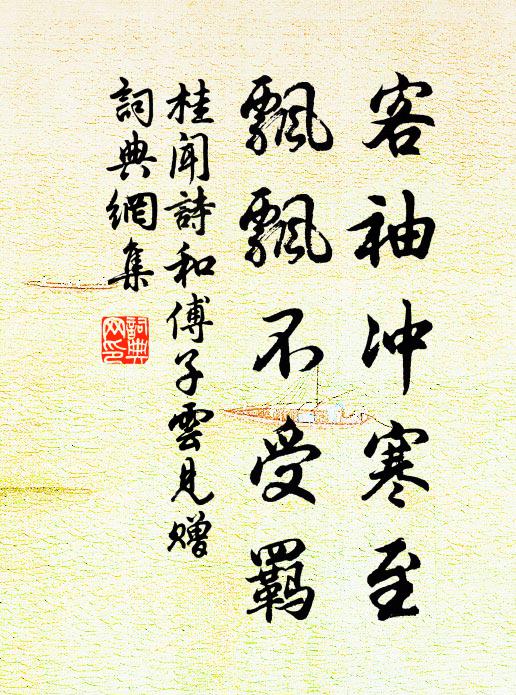 客袖冲寒至
飘飘不受羁
桂闻诗和傅子云见赠
词典网集
词典网印